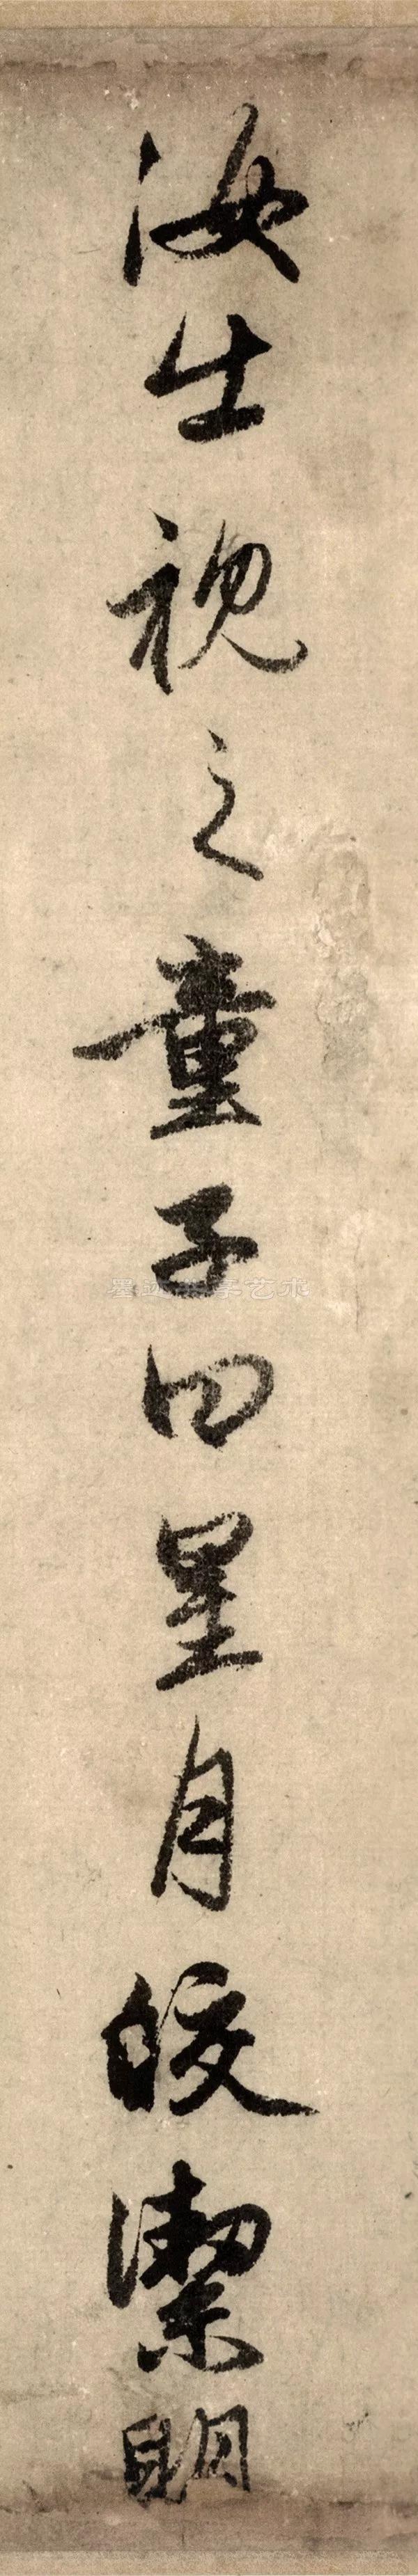 汝出視之童子曰星月皎潔明
艺术